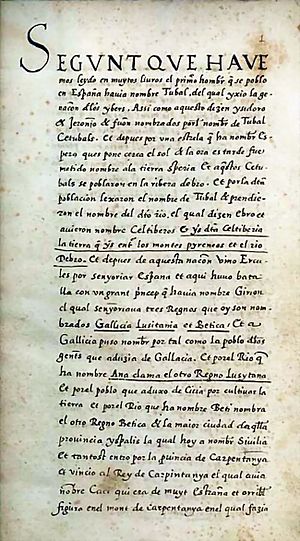 1
SEGUNT QUE HAVE
mos leydo en muytos livros el primo hombr q̃ se poblo
en España havia nombre Tubal, del qual yxio la ge-
nacon dlos ybers. Assi como aquesto dizen ysidoro
& Jeronjo & fuon nombrados porl nombr de Tubal
Cetubals. Et depues por una estrela q̃ ha nombr Es-
pero que pone cerca el sol d la ora es tarde fue
metido nombre ala tierra speria Et aq̃stos Cetu-
bals se poblaron en la ribera debro. Et porla dta
poblacion lexaron el nombre de Tubal & prendie-
ron el nombre del dto rio, el qual dizen Ebro et
avieron nombre Celtiberos & ys dta Celtiberia
la tierra q̃ ys entr los montes pyreneos et el rio
Debro. Et depues de aquesta nacon vino Ercu-
les por senyoriar Espana et aqui huvo bata-
lla con un grant prncep q̃ havia nombre Girion
el qual senyoriava tres Regnos que oy son nom-
brados Gallicia Lusitania et Betica. Et a
Gallicia puso nombr por tal como la poblo dlos
gents que aduzia de Gallacia. Et porel Rio q̃
ha nombre Ana clama el otro Regno Lusytano
Et porel poblo que aduxo de Cicia por cultivar la
tierra et porel Rio que ha nombre Beti nombra
el otro Regno Betica & la maior ciudad daq̃lla
provincia yspalis la qual hoy a nombr Sivilia
Et tantost entro por la pvincia de Carpentanya
et vincio al Rey de Carpintanya el qual avia
nombre Caci qui era de muyt estraña et orribl
figura en el mont de Carpentanya en el qual fazia